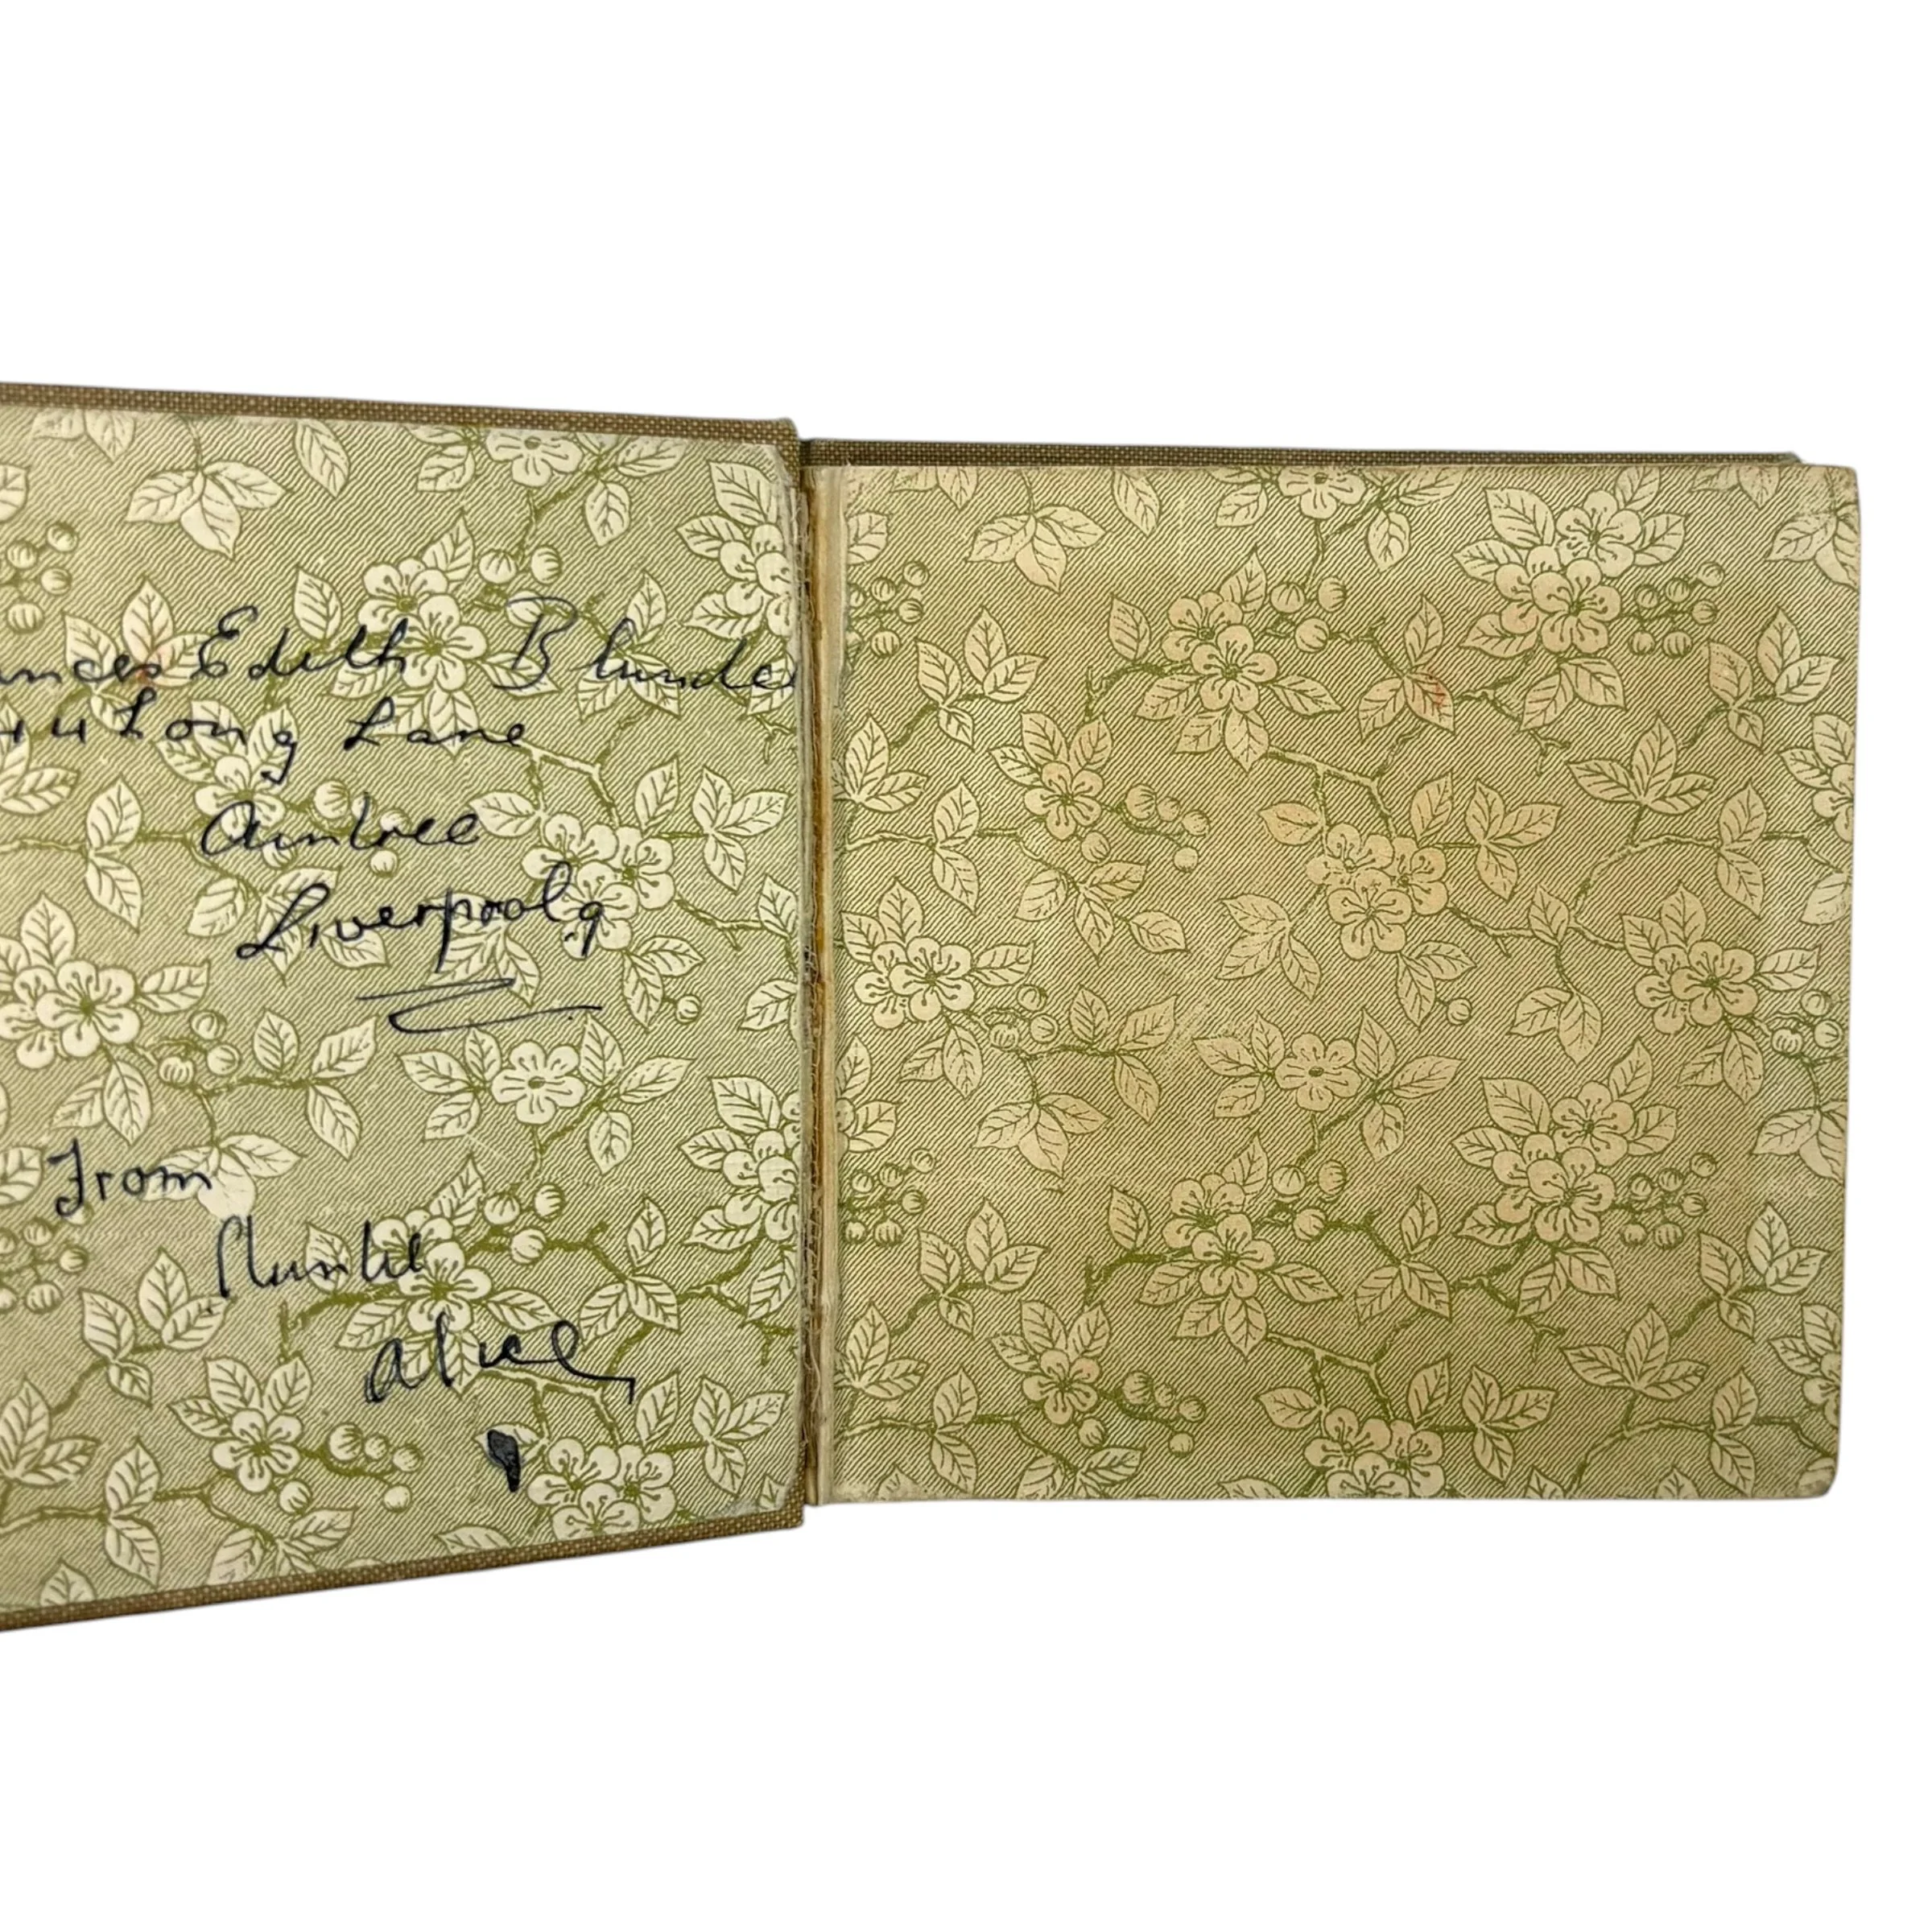 ances Edith Blunde
44 Long Lane
Aintree
Liverpool 9
From
Auntie
Alice